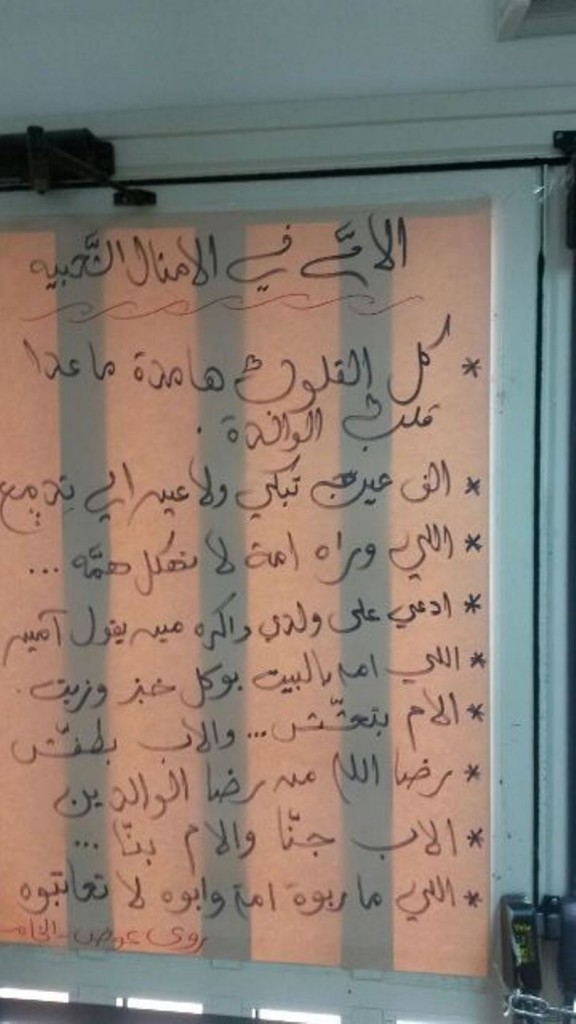 الأم في الامثال الشعبيه
* كل القلوب هامدة ما عدا
قلب الوالدة .
* الف عين تبكي ولا عين امي تدمع
* اللي وراه امه لا تهكل همّه ...
* ادعي على ولدي واكره مين يقول آمين
* اللي امه بالبيت بوكل خبز وزيت .
* الام بتعشّش ... والاب بطفّش
* رضا الله من رضا الوالدين
* الاب جنّا والام بنّا ...
* اللي ما ربوه امه وابوه لا تعاتبوه
روى عوض